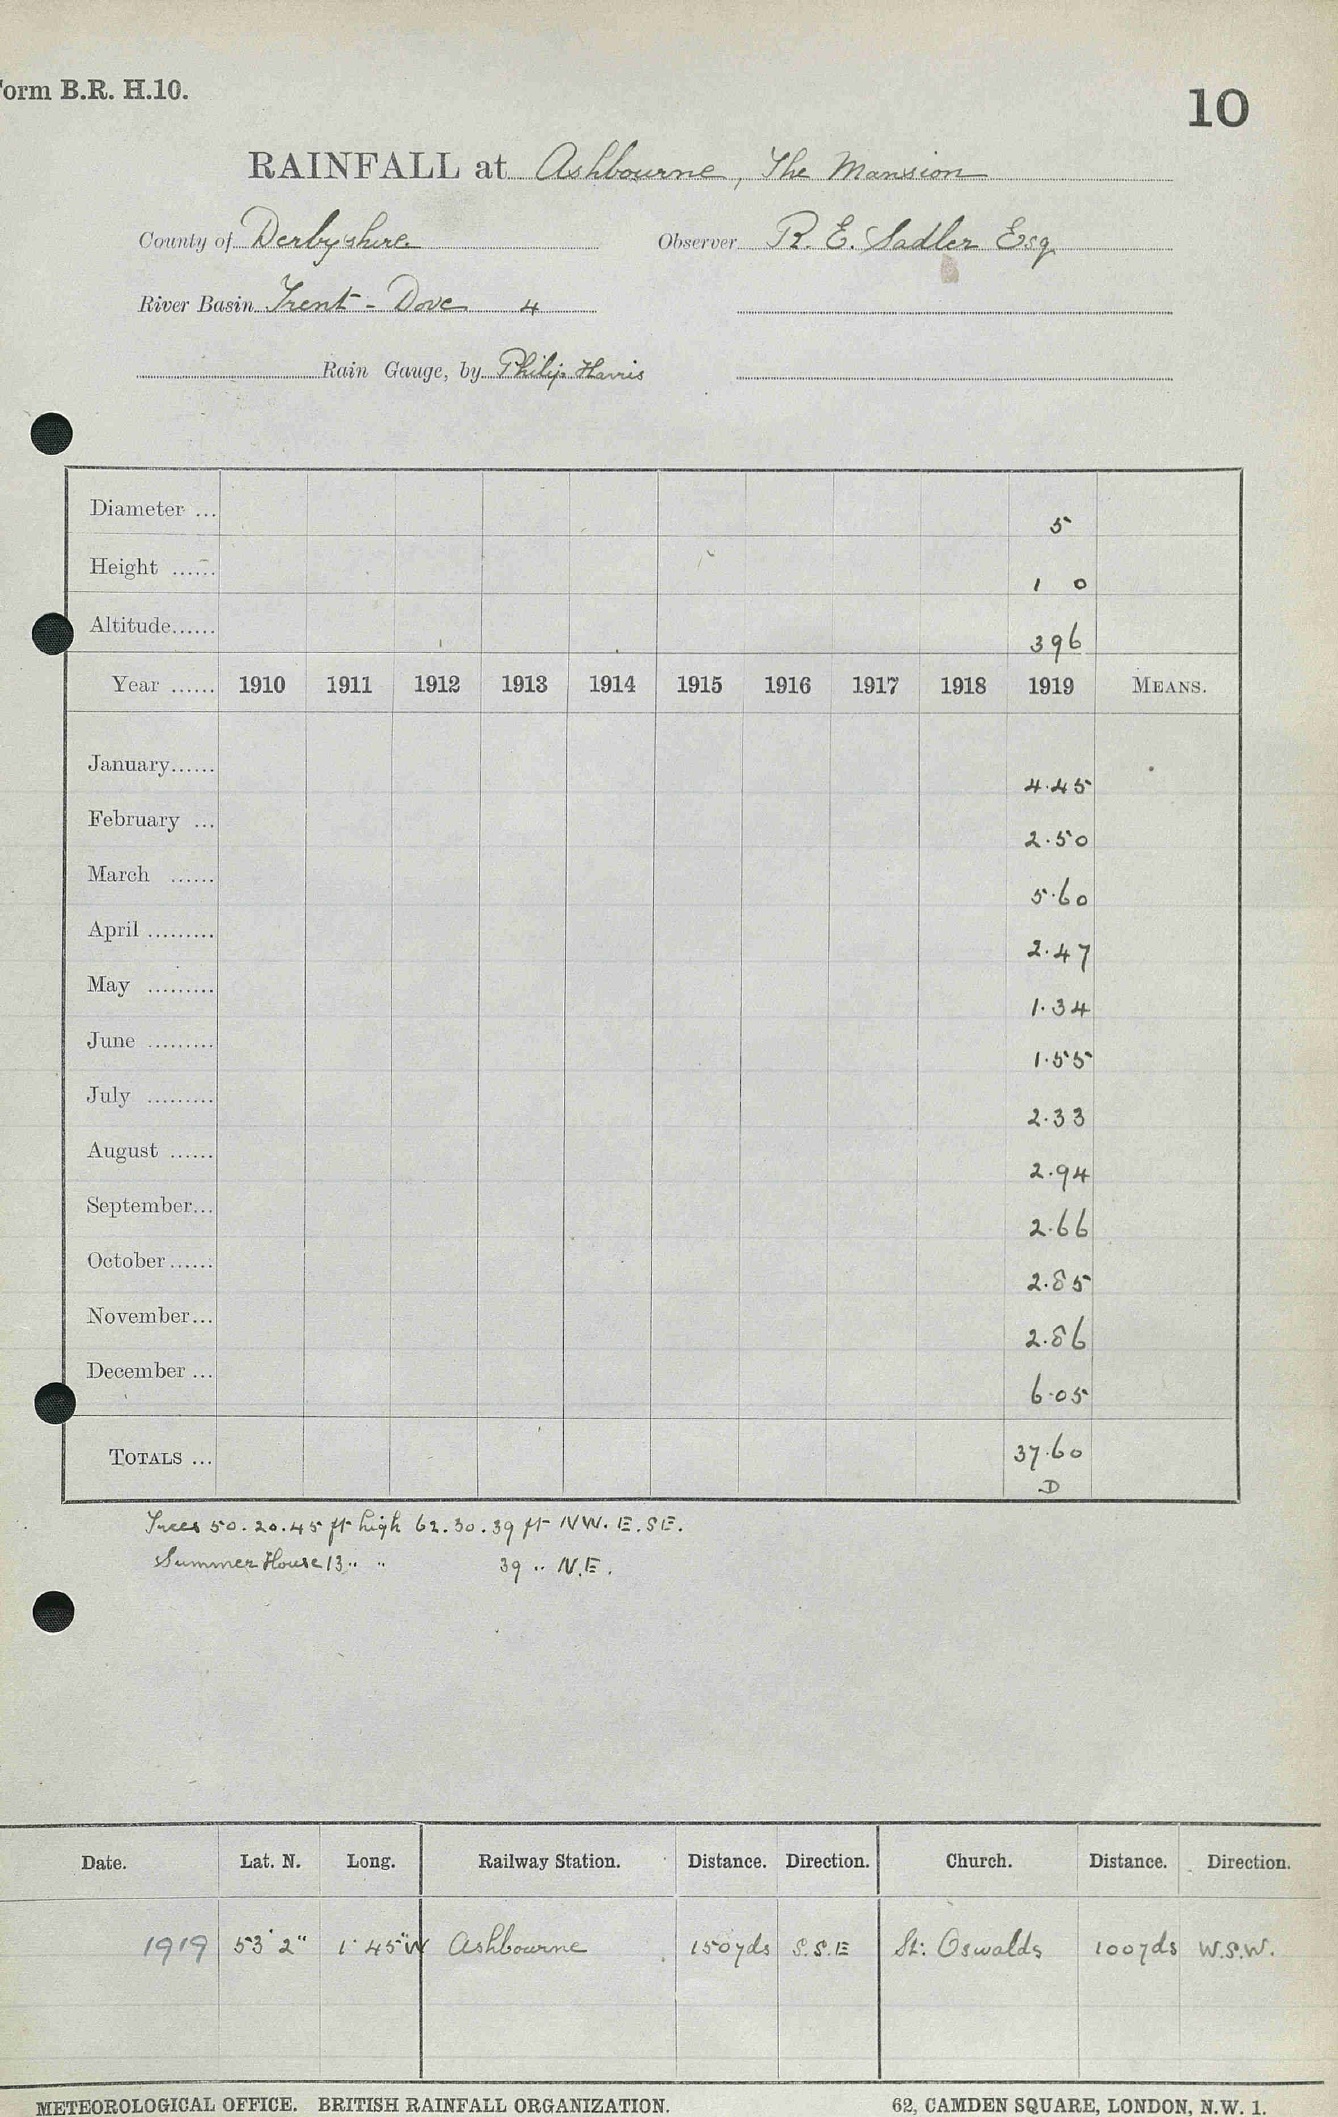 Form B.R. H.10.
10
RAINFALL at Ashbourne, The Mansion
County of Derbyshire Observer R. E. Sadler Esq
River Basin Trent - Dove 4
Rain Gauge, by Philip Harris
Diameter ... 5
Height ...... 1 0
Altitude...... 396
Year ...... 1910 1911 1912 1913 1914 1915 1916 1917 1918 1919 MEANS.
January...... 4.45
February ... 2.50
March ...... 5.60
April ......... 2.47
May ......... 1.34
June ......... 1.55
July ......... 2.33
August ...... 2.94
September... 2.66
October...... 2.85
November... 2.86
December ... 6.05
TOTALS ... 37.60
D
Trees 50. 20. 45 ft high 62. 30. 39 ft NW. E. SE.
Summer House 13 " " 39 " N.E.
Date. Lat. N. Long. Railway Station. Distance. Direction. Church. Distance. Direction.
1919 53° 2" 1° 45" W Ashbourne 150yds S.S.E St: Oswalds 100yds W.S.W.
METEOROLOGICAL OFFICE. BRITISH RAINFALL ORGANIZATION. 62, CAMDEN SQUARE, LONDON, N.W. 1.